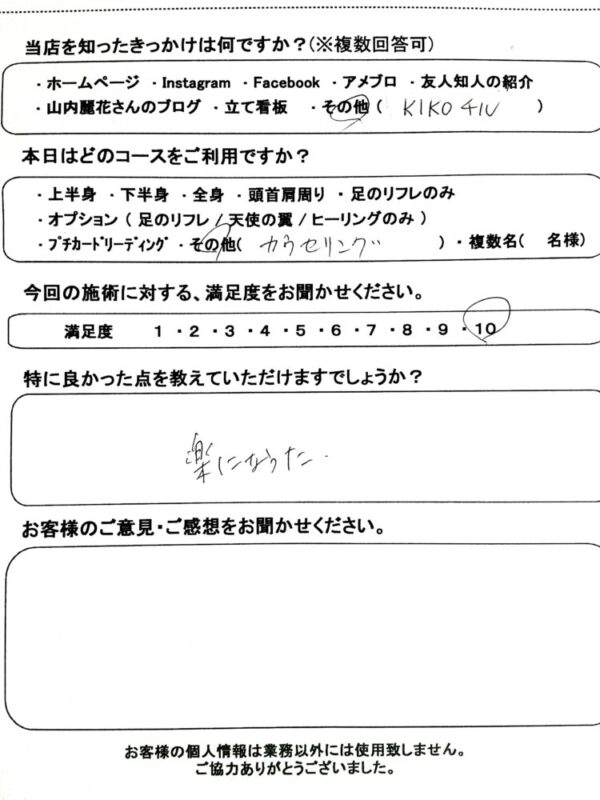 当店を知ったきっかけは何ですか?(※複数回答可)
・ホームページ ・Instagram ・Facebook ・アメブロ ・友人知人の紹介
・山内麗花さんのブログ ・立て看板 ・その他( KIKO )
本日はどのコースをご利用ですか?
・上半身 ・下半身 ・全身 ・頭首肩周り ・足のリフレのみ
・オプション( 足のリフレ / 天使の翼 / ヒーリングのみ )
・プチカードリーディング ・その他( カウセリング )・複数名( 名様)
今回の施術に対する、満足度をお聞かせください。
満足度 1 ・2 ・3 ・4 ・5 ・6 ・7 ・8 ・9 ・10
特に良かった点を教えていただけますでしょうか?
楽になった.
お客様のご意見・ご感想をお聞かせください。
お客様の個人情報は業務以外には使用致しません。
ご協力ありがとうございました。